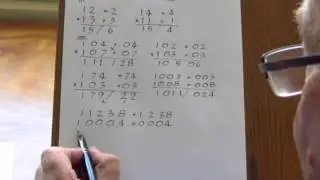 12 +2 14 + 4
×13 + 3 ×11 + 1
15/6 15/4
104 + 04 102 + 02
×107 + 07 ×103 + 03
111/28 105 06
174 +74 1003 + 003
×103 +03 1008 + 008
179/ 1011/024
11238 +1238
10004 +0004